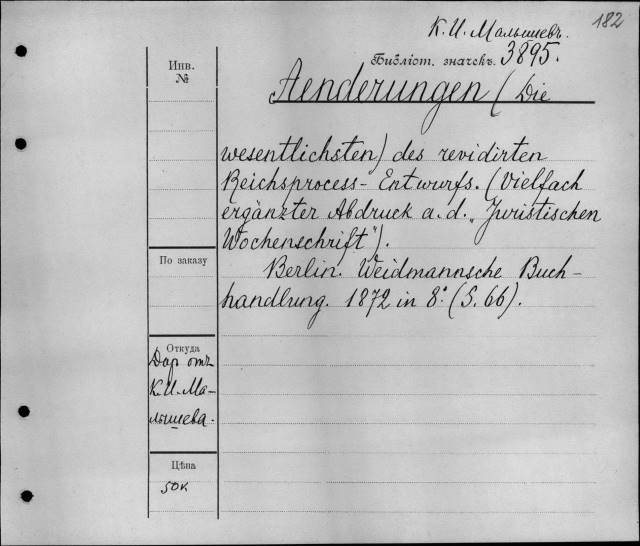 182
К. И. Малышевъ.
Библіот. значекъ. 3895.
Инв.
№
Aenderungen (Die
wesentlichsten) des revidirten
Reichsprocess- Entwurfs. (Vielfach
ergänzter Abdruck a. d. „Juristischen
Wochenschrift").
По заказу
Berlin. Weidmannsche Buch-
handlung. 1872 in 8°. (S. 66).
Откуда
Даръ отъ
К. И. Ма-
лышева.
Цѣна
50к